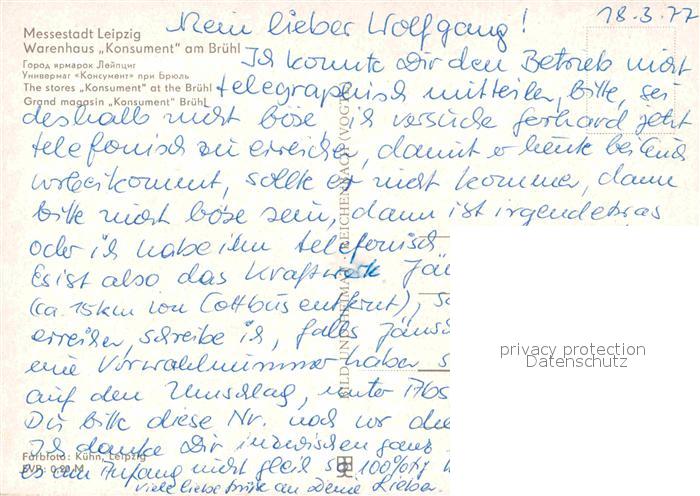 Messestadt Leipzig
Warenhaus „Konsument“ am Brühl
Город ярмарок Лейпциг
Универмаг «Консумент» при Брюль
The stores „Konsument“ at the Brühl
Grand magasin „Konsument“ Brühl
18.3.77
Mein lieber Wolfgang!
Ich konnte Dir den Betrieb nicht
telegraphisch mitteilen, bitte, sei
deshalb nicht böse ich versuche Gerhard jetzt
telefonisch zu erreichen, damit er heute bei Euch
vorbeikommt, sollte er nicht kommen, dann
bitte nicht böse sein, dann ist irgendetwas
oder ich habe ihn telefonisch
Es ist also das Kraftwerk Jän
(ca. 15 km von Cottbus entfernt), so
erreichen, schreibe ich, falls Jänsch
eine Vorwahlnummer haben s
auf den Umschlag, unter 1765
Du bitte diese Nr. noch vor die
Ich danke Dir inzwischen ganz
es am Anfang nicht gleich so 100%ig
viele liebe Grüße an Deine Lieben.
Farbfoto: Kühn, Leipzig
EVP: 0,20 M
BILD UND HEIMAT REICHENBACH (VOGTL)
privacy protection
Datenschutz